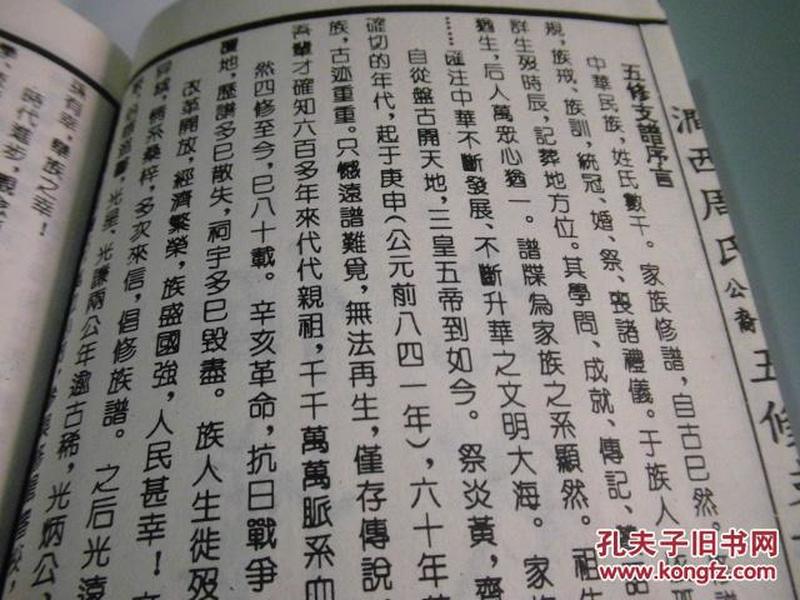 澗西周氏公裔五修
五修支譜序言
中華民族，姓氏數千。家族修譜，自古已然。
規，族戒、族訓，統冠、婚、祭、喪諸禮儀。于族人
詳生歿時辰，記葬地方位。其學問、成就、傳記、
猶生，后人萬眾心猶一。譜牒為家族之系顯然。祖
…匯注中華不斷發展、不斷升華之文明大海。家
自從盤古開天地，三皇五帝到如今。祭炎黃，齊
確切的年代，起于庚申（公元前八四一年），六十年
族，古迹重重。只憾遠譜難覓，無法再生，僅存傳說
吾輩才確知六百多年來代代親祖，千千萬萬脈系血
然四修至今，已八十載。辛亥革命，抗日戰爭
覆地，歷譜多已散失，祠宇多已毀盡。族人生徙歿
改革開放，經濟繁榮，族盛國強，人民甚幸！
情系桑梓，多次來信，倡修族譜。之后光遠
光謙兩公年逾古稀，光炳公，
有幸，舉族之幸！
時代進步，觀
孔夫子旧书网
www.kongfz.com